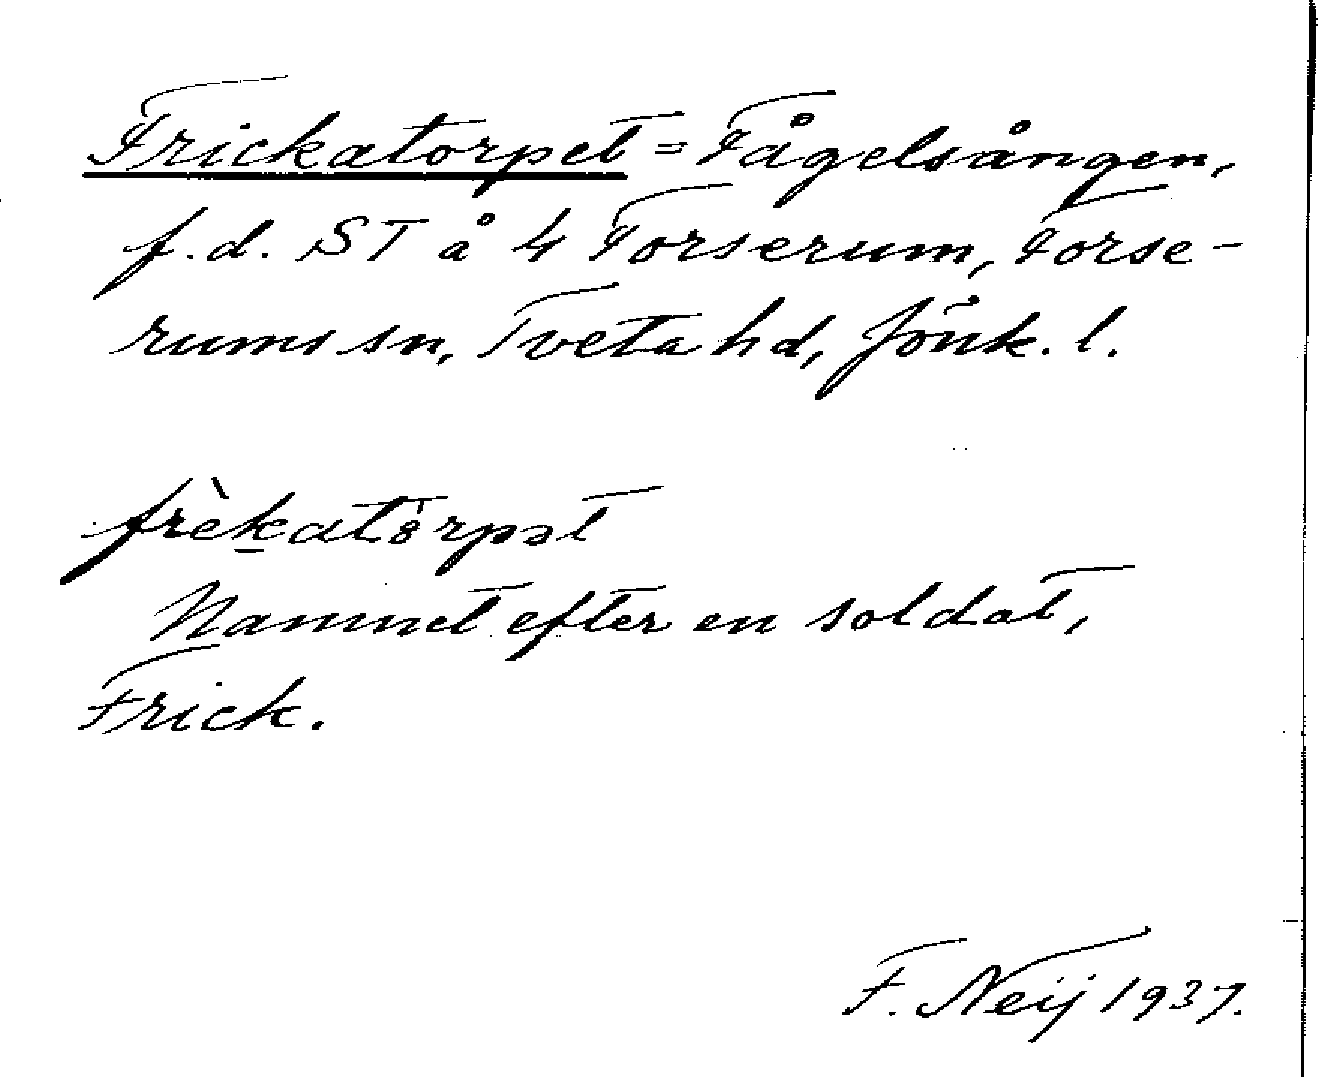 Frickatorpet = Fågelsången,
f.d. ST å 4 Forserum, Forse-
rums sn, Tveta hd, Jönk. l.
frèk̲atȯrpət
Namnet efter en soldat,
Frick.
F. Neij 1937.